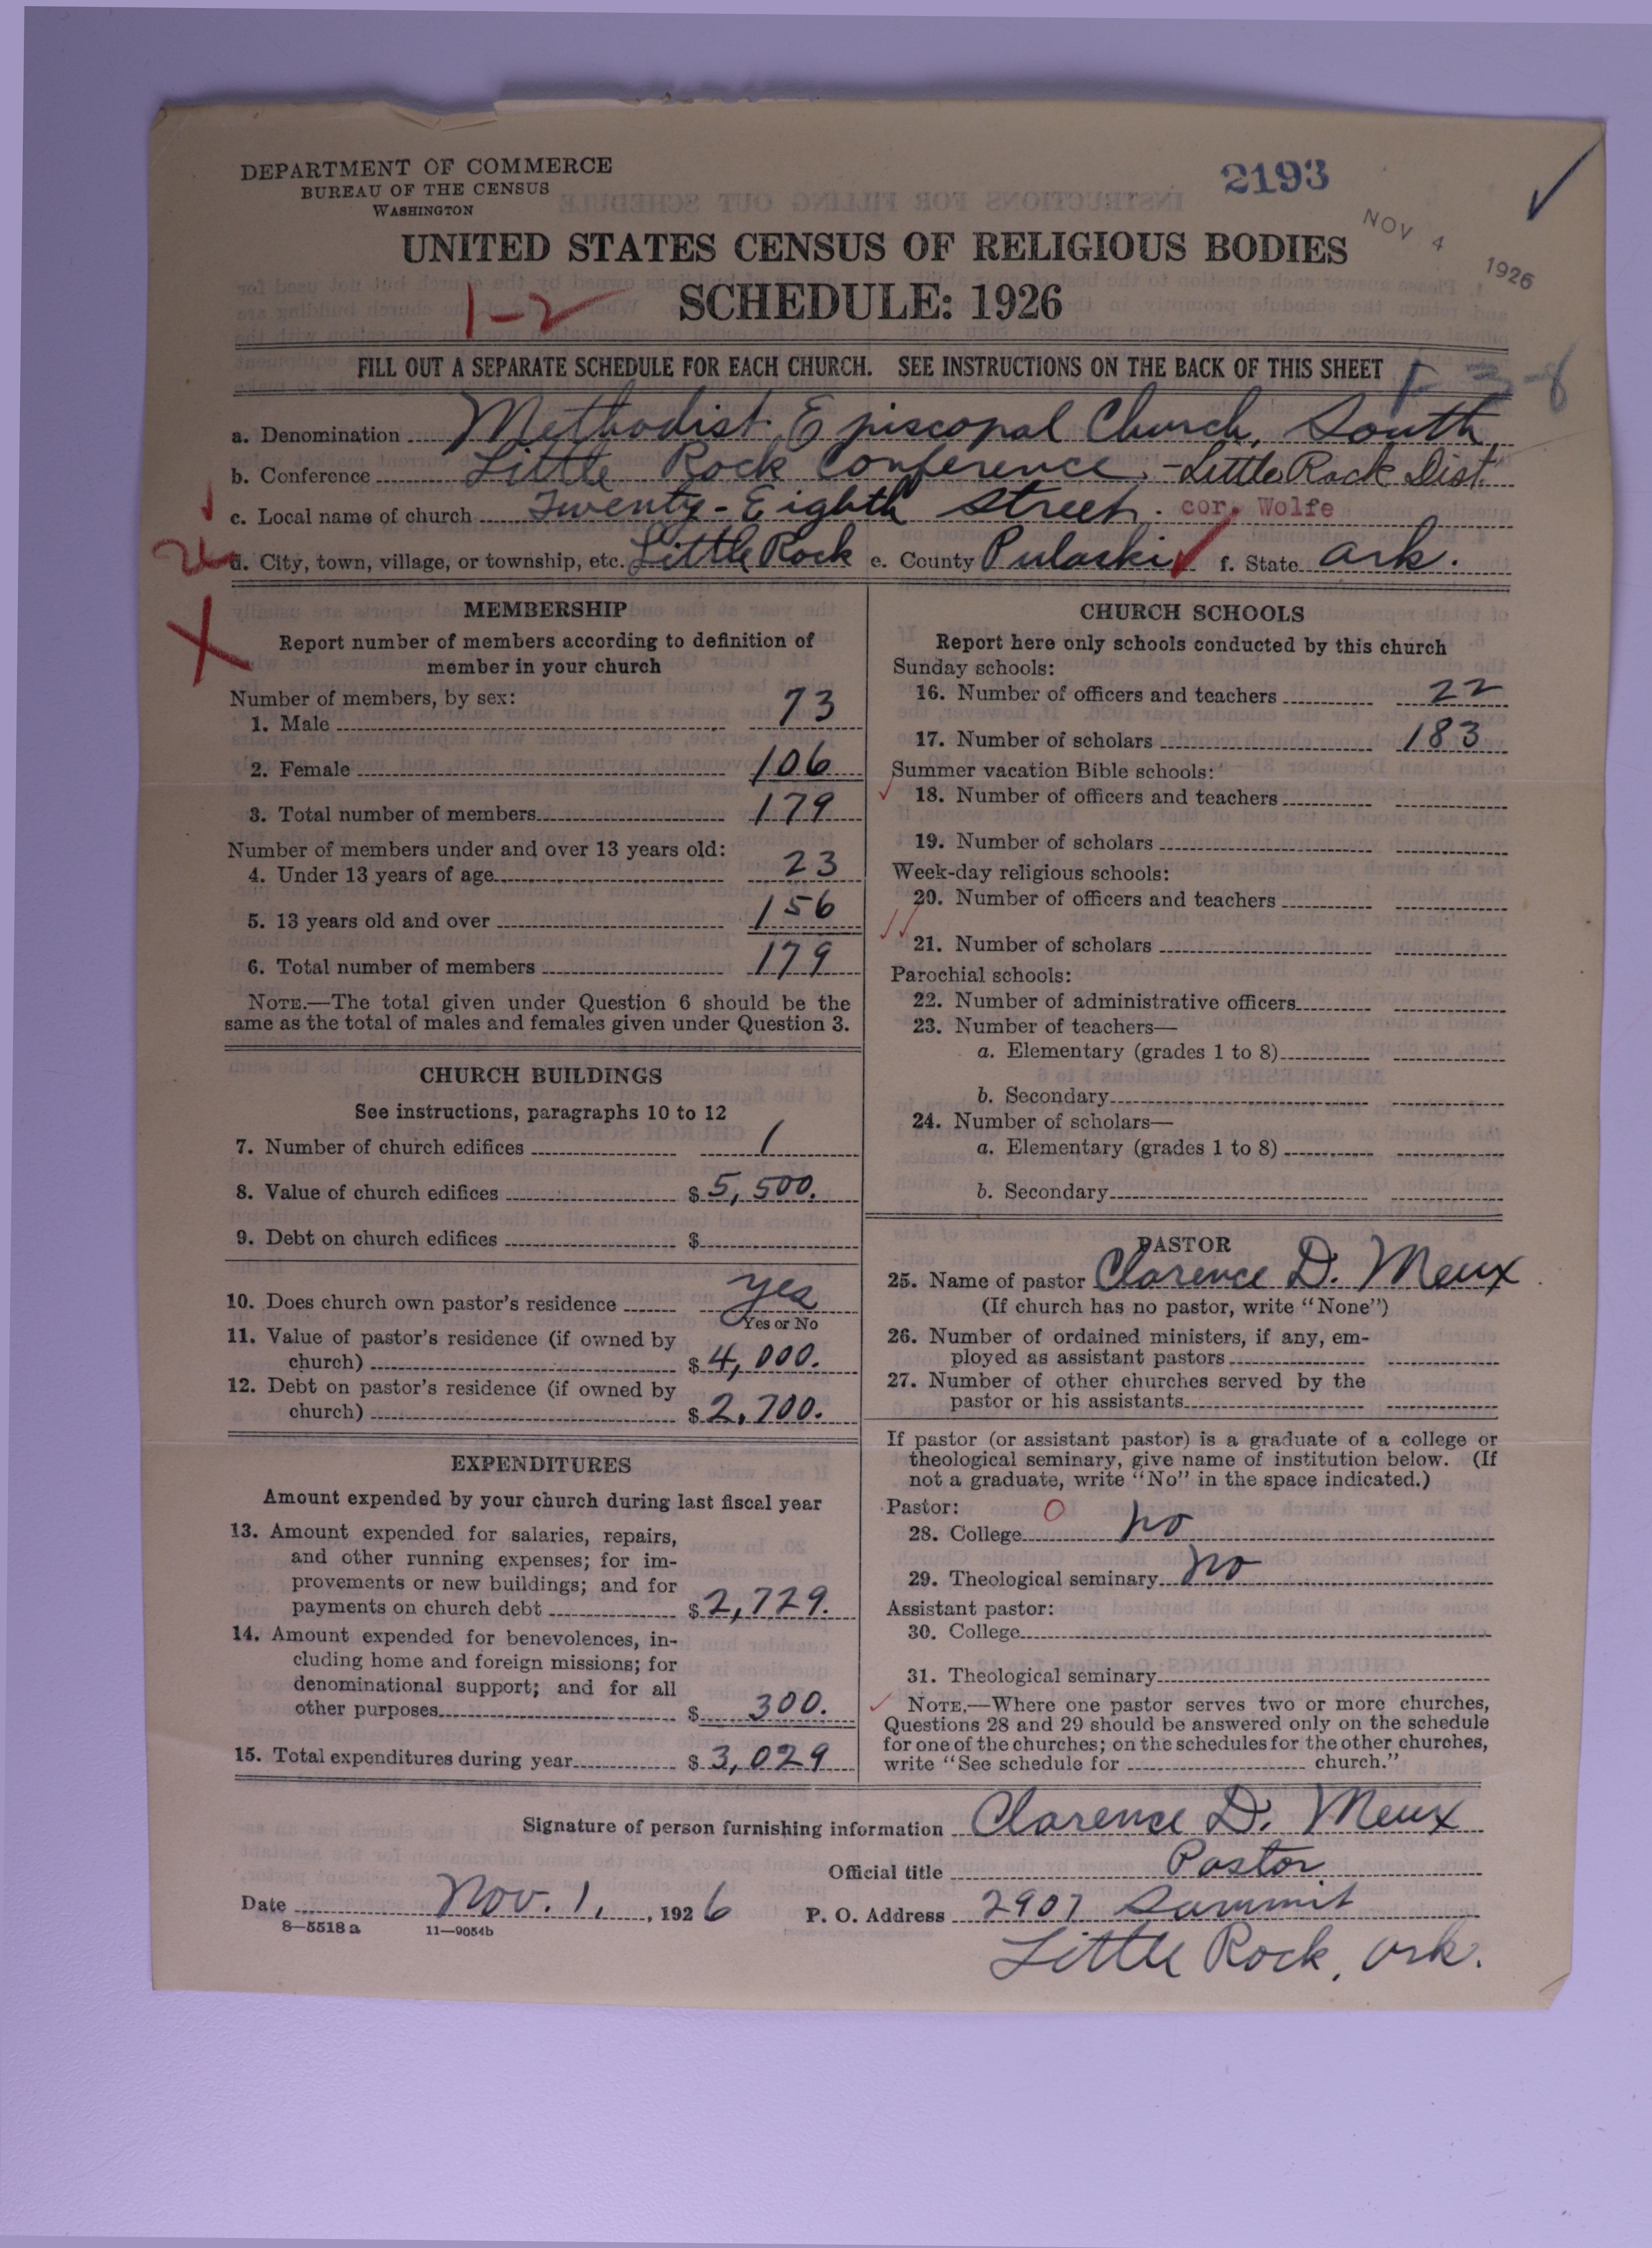 DEPARTMENT OF COMMERCE
BUREAU OF THE CENSUS
WASHINGTON
2193
NOV 4 1926
UNITED STATES CENSUS OF RELIGIOUS BODIES
1-2
SCHEDULE: 1926
FILL OUT A SEPARATE SCHEDULE FOR EACH CHURCH. SEE INSTRUCTIONS ON THE BACK OF THIS SHEET
3-8
a. Denomination Methodist Episcopal Church, South,
b. Conference Little Rock Conference, - Little Rock Dist.
c. Local name of church Twenty-Eighth Street. cor. Wolfe
d. City, town, village, or township, etc. Little Rock e. County Pulaski f. State Ark.
MEMBERSHIP
Report number of members according to definition of
member in your church
Number of members, by sex:
1. Male 73
2. Female 106
3. Total number of members 179
Number of members under and over 13 years old:
4. Under 13 years of age 23
5. 13 years old and over 156
6. Total number of members 179
NOTE.—The total given under Question 6 should be the
same as the total of males and females given under Question 3.
CHURCH BUILDINGS
See instructions, paragraphs 10 to 12
7. Number of church edifices 1
8. Value of church edifices $ 5,500.
9. Debt on church edifices $
10. Does church own pastor's residence yes
Yes or No
11. Value of pastor's residence (if owned by
church) $ 4,000.
12. Debt on pastor's residence (if owned by
church) $ 2,700.
EXPENDITURES
Amount expended by your church during last fiscal year
13. Amount expended for salaries, repairs,
and other running expenses; for im-
provements or new buildings; and for
payments on church debt $ 2,729.
14. Amount expended for benevolences, in-
cluding home and foreign missions; for
denominational support; and for all
other purposes $ 300.
15. Total expenditures during year $ 3,029
CHURCH SCHOOLS
Report here only schools conducted by this church
Sunday schools:
16. Number of officers and teachers 22
17. Number of scholars 183
Summer vacation Bible schools:
18. Number of officers and teachers
19. Number of scholars
Week-day religious schools:
20. Number of officers and teachers
21. Number of scholars
Parochial schools:
22. Number of administrative officers
23. Number of teachers—
a. Elementary (grades 1 to 8)
b. Secondary
24. Number of scholars—
a. Elementary (grades 1 to 8)
b. Secondary
PASTOR
25. Name of pastor Clarence D. Meux
(If church has no pastor, write "None")
26. Number of ordained ministers, if any, em-
ployed as assistant pastors
27. Number of other churches served by the
pastor or his assistants
If pastor (or assistant pastor) is a graduate of a college or
theological seminary, give name of institution below. (If
not a graduate, write "No" in the space indicated.)
Pastor: 0
28. College no
29. Theological seminary no
Assistant pastor:
30. College
31. Theological seminary
NOTE.—Where one pastor serves two or more churches,
Questions 28 and 29 should be answered only on the schedule
for one of the churches; on the schedules for the other churches,
write "See schedule for church."
Signature of person furnishing information Clarence D. Meux
Official title Pastor
Date Nov. 1, 1926 P. O. Address 2907 Summit
8—5518 a 11—9054b
Little Rock, Ark.